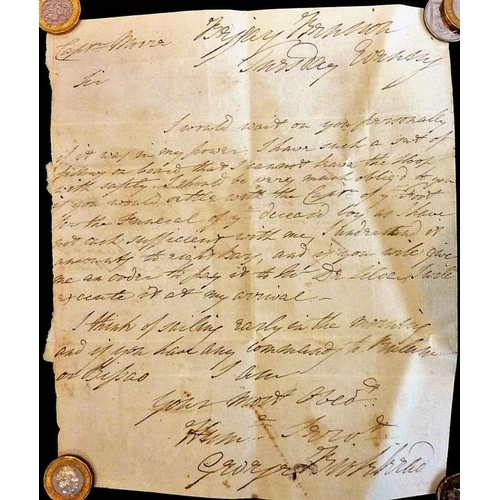 Capn. Moore
Tuesday Evening
Sir
I would wait on you personally
if it was in my power. I have such a set of
fellows on board that I cannot leave the sloop
with safety. I should be very much oblig'd to you
if you would settle with the Captn of ye Fort
for the Funeral of ye deceased boy as I have
not cash sufficient with me, I understand it
amounts to eight bars, and if you will give
me an order to pay it to Mr. De Silva, I will
execute it at my arrival –
I think of sailing early in the morning
and if you have any commands to
or Bissao I am
Your most Obedt.
Humle Servt.
George